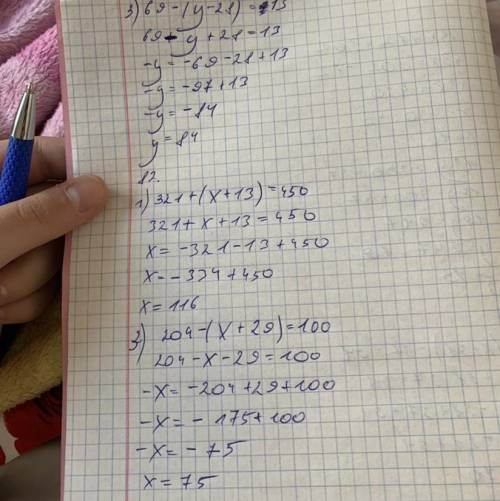 3) 69-(y-28)=13
69-y+28=13
-y=-69-28+13
-y=-97+13
-y=-84
y=84
82.
1) 321+(x+13)=450
321+x+13=450
x=-321-13+450
x=-334+450
x=116
2) 204-(x+29)=100
204-x-29=100
-x=-204+29+100
-x=-175+100
-x=-75
x=75